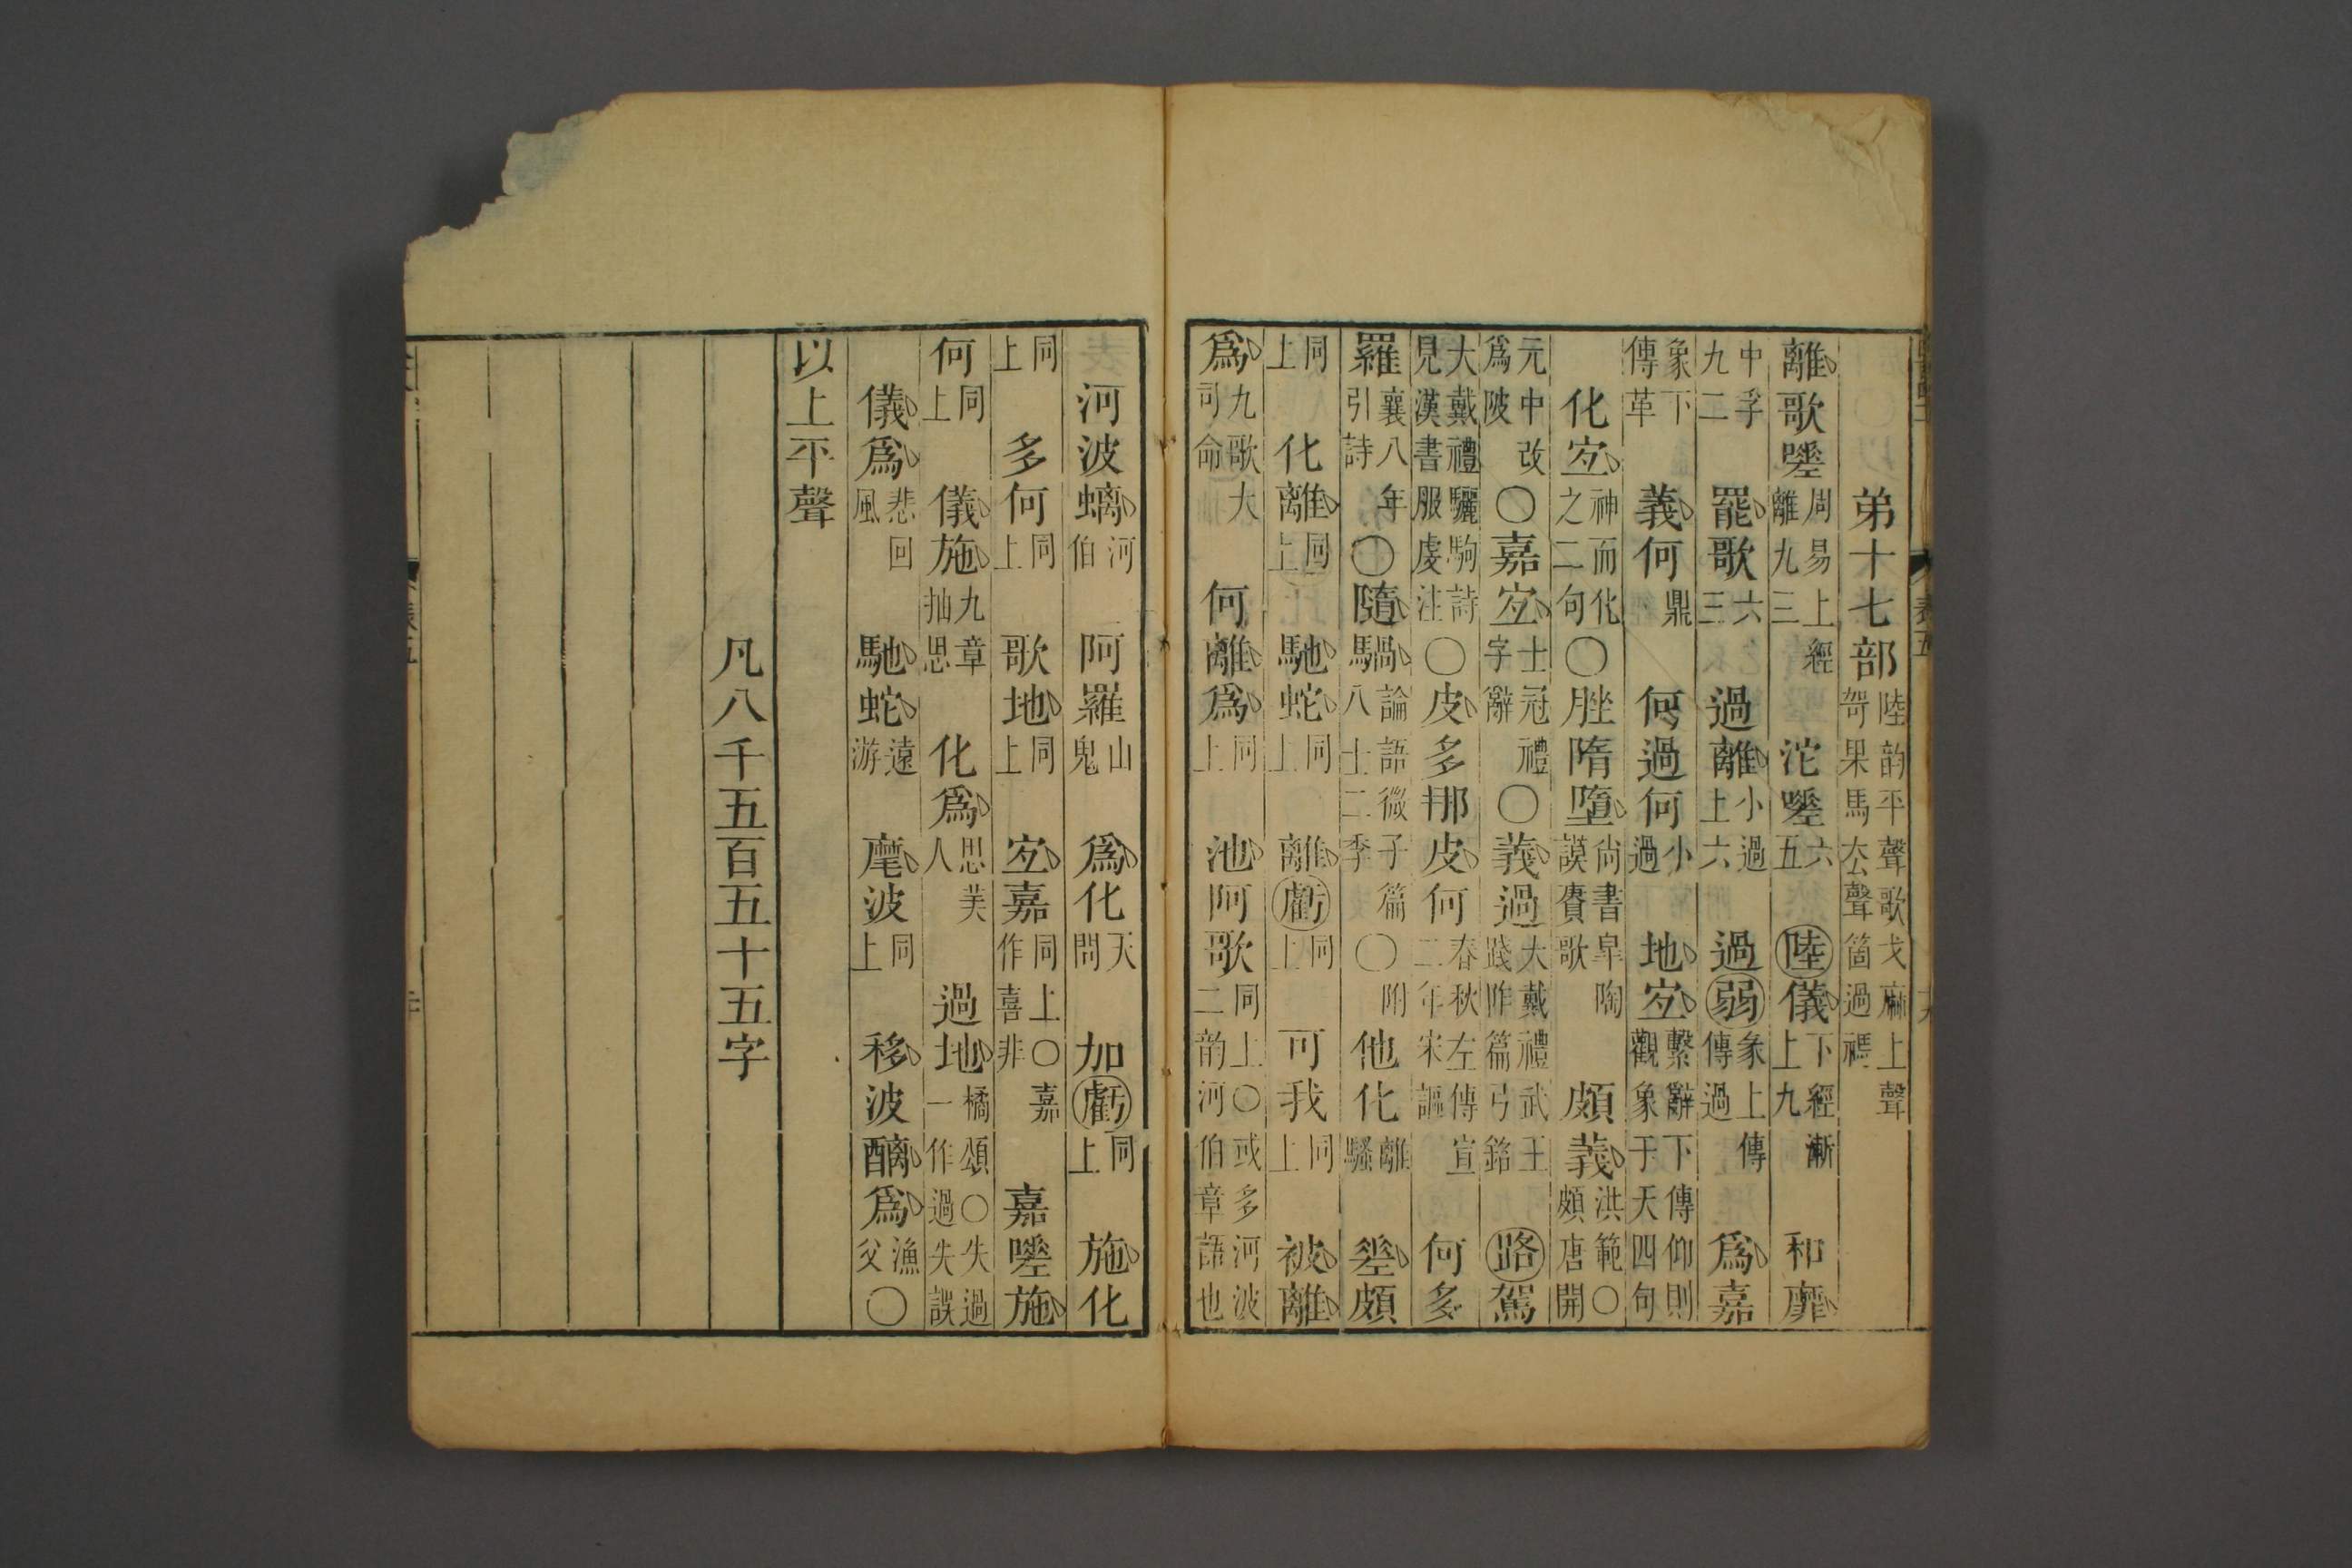 弟十七部陸韵平聲歌戈麻上聲哿果馬厺聲箇過禡
離歌𡄸周易上經離九三 沱𡄸六五 陸儀下經漸上九 和靡
中孚九二 罷歌六三 過離小過上六 過弱象上傳過傳 爲嘉
象下傳革 義何鼎 何過何小過 地宐繫辭下傳仰則觀象于天四句
化宐神而化之二句〇脞隋墮尚書皋陶謨賡歌 頗義洪範〇頗唐開
元中改爲陂〇嘉宐士冠禮字辭〇義過大戴禮武王踐阼篇弓銘 路駕
大戴禮驪駒詩見漢書服虔注〇皮多那皮何春秋左傳宣二年宋謳 何多
羅襄八年引詩〇隨騧論語微子篇八士二季〇附 他化離騷 𢀩頗
同上 化離同上 馳蛇同上 離虧同上 可我同上 被離
爲九歌大司命 何離爲同上 池阿歌同上〇或多河波二韵河伯章語也
河波螭河伯 阿羅山鬼 爲化天問 加虧同上 施化
同上 多何同上 歌地同上 宐嘉同上〇嘉作喜非 嘉𡄸施
何同上 儀施九章抽思 化爲思美人 過地橘頌〇失過一作過失誤
儀爲悲回風 馳蛇遠游 麾波同上 移波醨爲漁父〇
以上平聲
凡八千五百五十五字